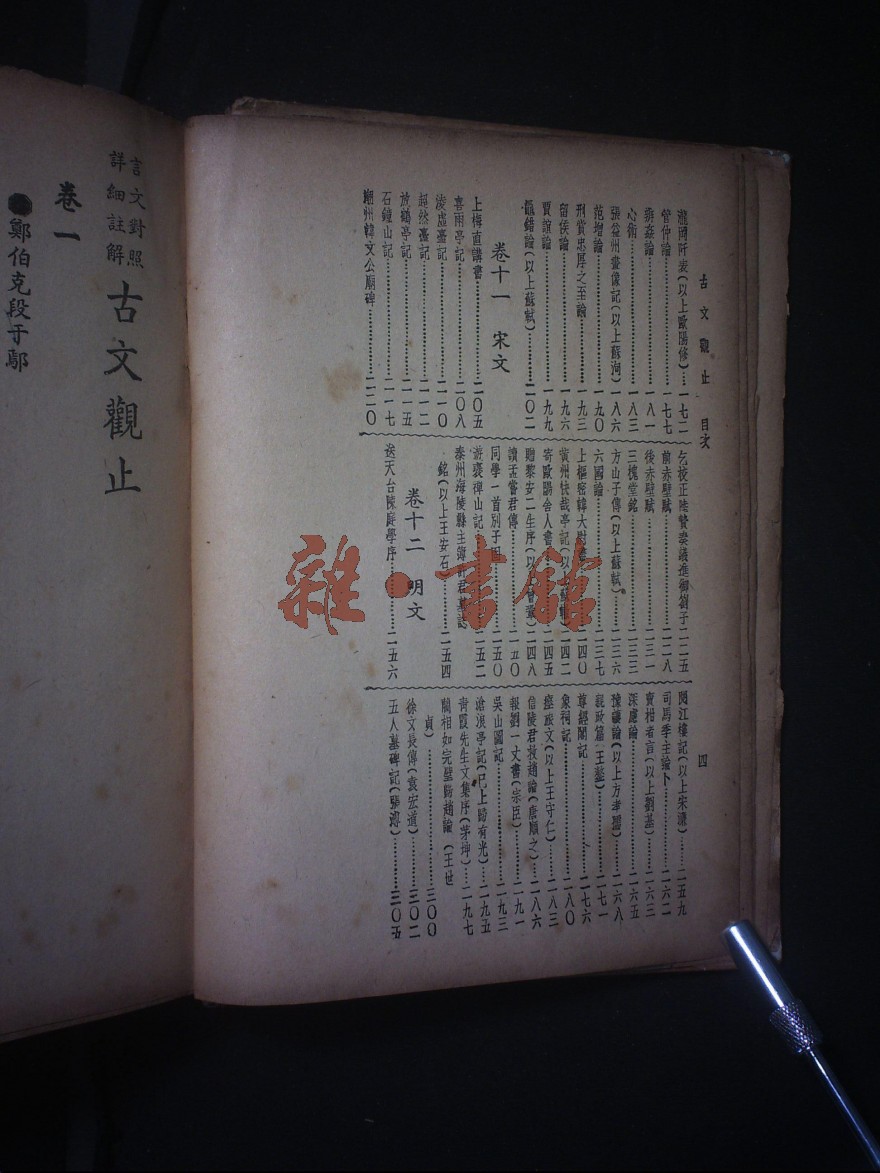 古文觀止　目次　四
瀧岡阡表(以上歐陽修)…一七二
管仲論…一七七
辨姦論…一八一
心術…一八三
張益州畫像記(以上蘇洵)…一八六
范增論…一九〇
刑賞忠厚之至論…一九三
留侯論…一九六
賈誼論…一九九
鼂錯論(以上蘇軾)…二〇二
卷十一　宋文
上梅直講書…二〇五
喜雨亭記…二〇八
凌虛臺記…二一〇
超然臺記…二一二
放鶴亭記…二一五
石鐘山記…二一七
潮州韓文公廟碑…二二〇
乞校正陸贄奏議進御劄子二二五
前赤壁賦…二二八
後赤壁賦…二三一
三槐堂銘…二三三
方山子傳(以上蘇軾)…二三六
六國論…二三七
上樞密韓大尉書…二四〇
黃州快哉亭記(以上蘇轍)二四二
寄歐陽舍人書…二四五
贈黎安二生序(以上曾鞏)二四八
讀孟嘗君傳…二五〇
同學一首別子固…二五〇
游褒禪山記…二五二
泰州海陵縣主簿許君墓誌
銘(以上王安石)…二五四
卷十二　明文
送天台陳庭學序…二五六
閱江樓記(以上宋濂)…二五九
司馬季主論卜…二六二
賣柑者言(以上劉基)…二六三
深慮論…二六五
豫讓論(以上方孝孺)…二六八
親政篇(王鏊)…二七一
尊經閣記…二七六
象祠記…二八〇
瘞旅文(以上王守仁)…二八三
信陵君救趙論(唐順之)…二八六
報劉一丈書(宗臣)…二九一
吳山圖記…二九三
滄浪亭記(已上歸有光)…二九五
青霞先生文集序(茅坤)…二九七
藺相如完璧歸趙論(王世
貞)…三〇〇
徐文長傳(袁宏道)…三〇二
五人墓碑記(張溥)…三〇五
言文對照
詳細註解
古文觀止
卷一
●鄭伯克段于鄢
雜·書館